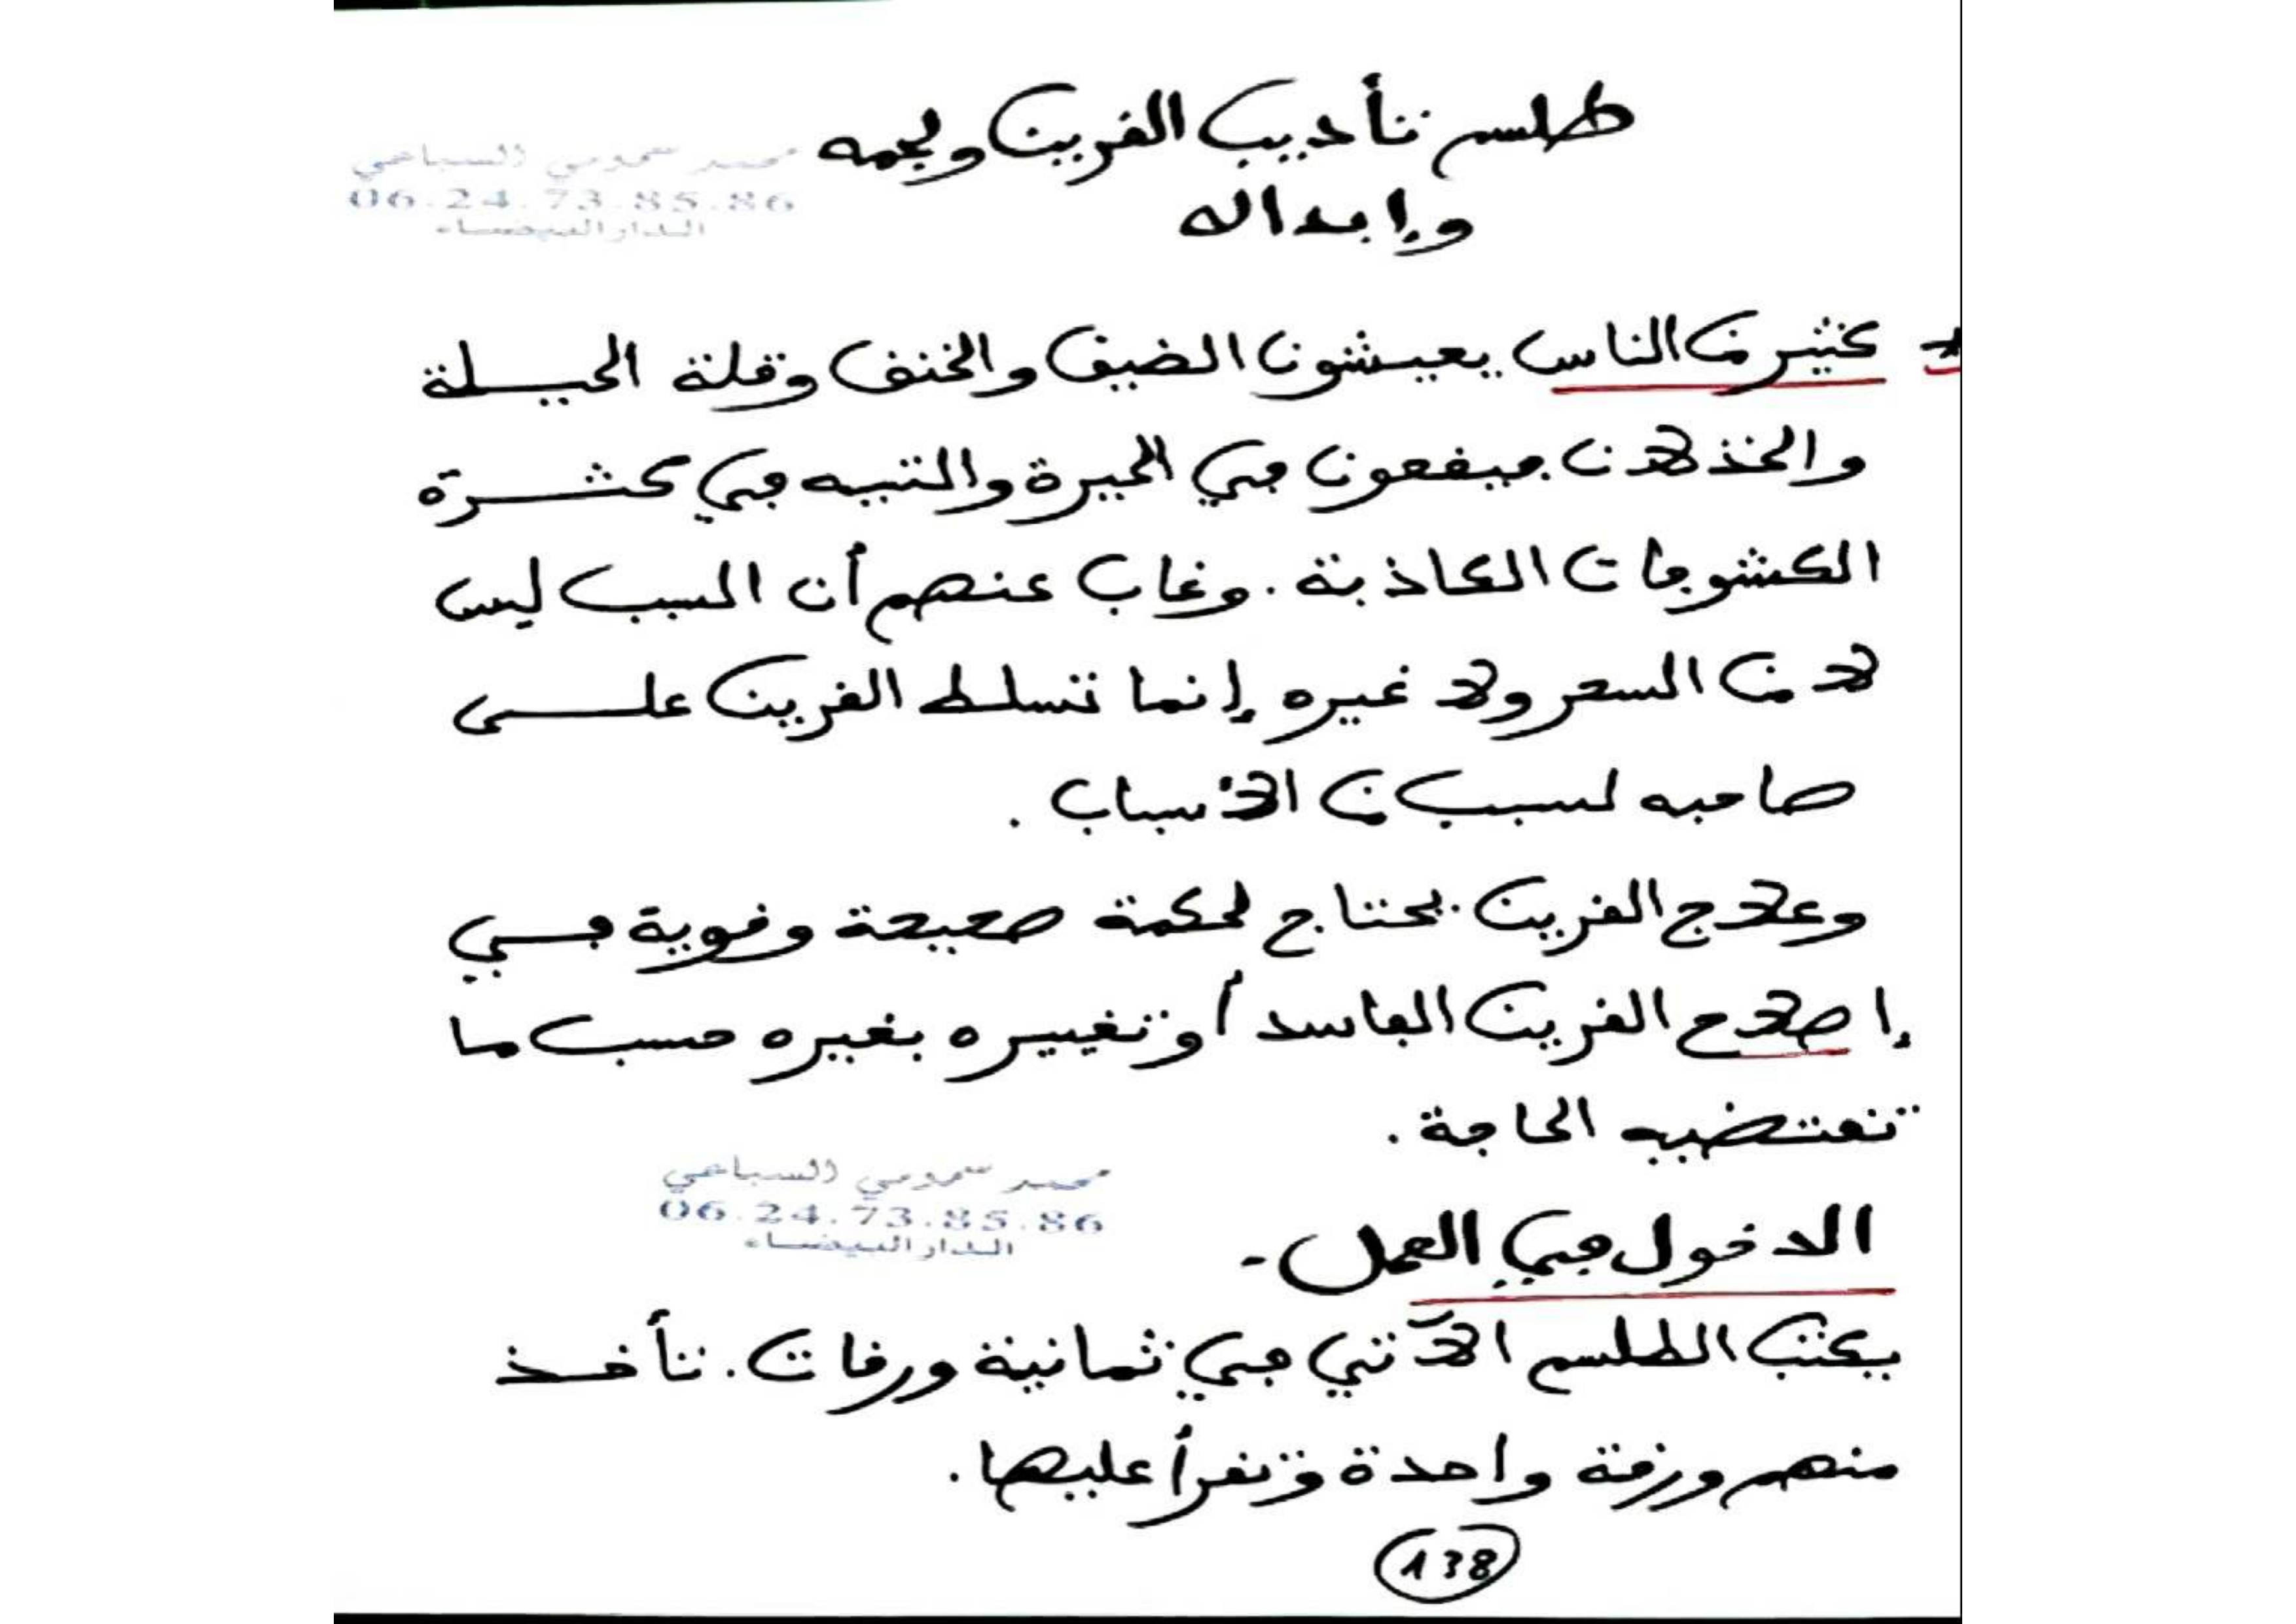 طلسم تأديب القرين ولجمه
وإبداله
محمد السباعي
06.24.73.85.86
الدار البيضاء
كثير من الناس يعيشون الضيق والخنق وقلة الحيلة
والخذلان فيقعون في الحيرة والتيه في كثرة
الكشوفات الكاذبة . وغاب عنهم أن السبب ليس
لا من السحر ولا غيره إنما تسلط القرين على
صاحبه لسبب من الأسباب .
وعلاج القرين يحتاج لحكمة صحيحة وقوية في
إصلاح القرين الفاسد أو تغييره بغيره حسب ما
تقتضيه الحاجة .
محمد السباعي
06.24.73.85.86
الدار البيضاء
الدخول في العمل -
يكتب الطلسم الآتي في ثمانية ورقات . تأخذ
منهم ورقة واحدة وتقرأ عليها .
138